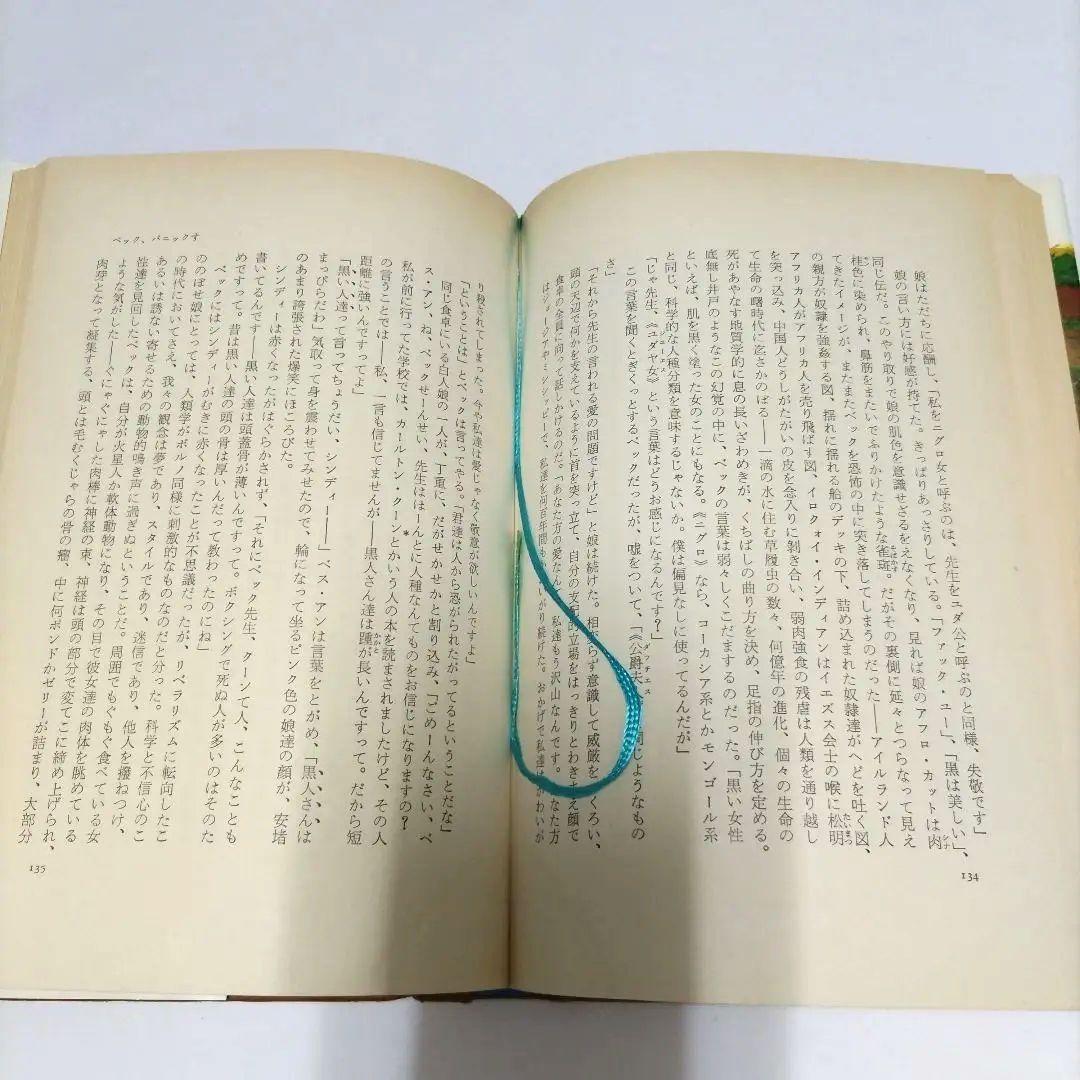 娘はただちに応酬し、「私をニグロ女と呼ぶのは、先生をユダ公と呼ぶのと同様、失敬です」
娘の言い方には好感が持てた。きっぱりあっさりしている。「ファック・ユー」、「黒は美しい」、
同じ伝だ。このやり取りで娘の肌色を意識せざるをえなくなり、見れば娘のアフロ・カットは肉
桂色に染められ、鼻筋をまたいでふりかけたような雀斑。だがその裏側に延々とつらなって見え
てきたイメージが、またまたベックを恐怖の中に突き落してしまうのだった――アイルランド人
の親方が奴隷を強姦する図、揺れに揺れる船のデッキの下、詰め込まれた奴隷達がへどを吐く図、
アフリカ人がアフリカ人を売り飛ばす図、イロクォイ・インディアンはイエズス会士の喉に松明
を突っ込み、中国人どうしがたがいの皮を念入りに剥き合い、弱肉強食の残虐は人類を通り越し
て生命の曙時代に迄さかのぼる――一滴の水に住む草履虫の数々、何億年の進化、個々の生命の
死があやなす地質学的に息の長いざわめきが、くちばしの曲り方を決め、足指の伸び方を定める。
底無し井戸のようなこの幻覚の中に、ベックの言葉は弱々しくこだまするのだった。「黒い女性
といえば、肌を黒く塗った女のことにもなる。《ニグロ》なら、コーカシア系とかモンゴール系
と同じ、科学的な人種分類を意味するじゃないか。僕は偏見なしに使ってるんだが」
「じゃ先生、《ユダヤ女》という言葉はどうお感じになるんです？」
この言葉を聞くとぎくっとするベックだったが、嘘をついて、「《公爵夫 同じようなもの
さ」
「それから先生の言われる愛の問題ですけど」と娘は続けた。相変らず意識して威厳をつくろい、
頭の天辺で何かを支えているように首を突っ立て、自分の支配的立場をはっきりとわきまえ顔で
食卓の全員に向って話しかけるのだ。「あなた方の愛なん 私達もう沢山なんです。あなた方
はジョージアやミシシッピーで、私達を何百年間も いがり続けた。おかげで私達はかわいが
134
ベック、パニックす
り殺されてしまった。今や私達は愛じゃなく敬意が欲しいんですよ」
「ということは」とベックは言ってやる。「君達は人から恐がられたがってるということだな」
同じ食卓にいる白人娘の一人が、丁重に、だがせかせかと割り込み、「ごめーんなさい、ベ
ス・アン、ね、ベックせーんせい、先生はほーんとに人種なんてものをお信じになりますの？
私が前に行ってた学校では、カールトン・クーンとかいう人の本を読まされましたけど、その人
の言うことでは――私、一言も信じてませんが――黒人さん達は踵が長いんですって。だから短
距離に強いんですってよ」
「黒い人達って言ってちょうだい、シンディー――」ベス・アンは言葉をとがめ、「黒人さんは
まっぴらだわ」気取って身を震わせてみせたので、輪になって坐るピンク色の娘達の顔が、安堵
のあまり誇張された爆笑にほころびた。
シンディーは赤くなったがはぐらかされず、「それにベック先生、クーンて人、こんなことも
書いてるんです――黒い人達は頭蓋骨が薄いんですって。ボクシングで死ぬ人が多いのはそのた
めですって。昔は黒い人達の頭の骨は厚いんだって教わったのにね」
ベックにはシンディーがむきに赤くなったことが不思議だったが、リベラリズムに転向したこ
ののぼせ娘にとっては、人類学がポルノ同様に刺激的なものなのだと分った。科学と不信心のこ
の時代においてさえ、我々の観念は夢であり、スタイルであり、迷信であり、他人を撥ねつけ、
あるいは誘ない寄せるための動物的鳴き声に過ぎぬということだ。周囲でもぐもぐ食べている女
性達を見回したベックは、自分が火星人か軟体動物になり、その目で彼女達の肉体を眺めている
ような気がした――ぐにゃぐにゃした肉棒に神経の束、神経は頭の部分で変てこに締め上げられ、
肉芽となって凝集する、頭とは毛むくじゃらの骨の瘤、中に何ポンドかゼリーが詰まり、大部分
135